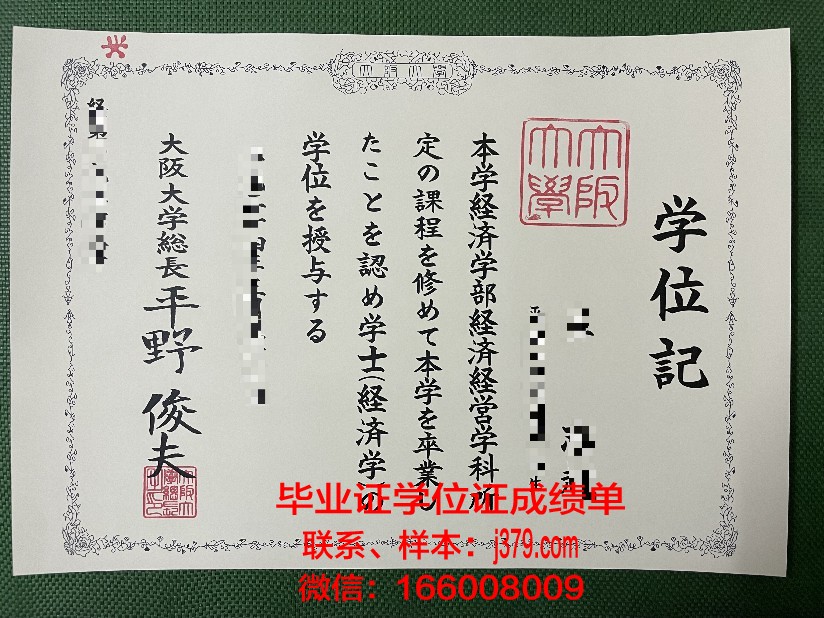 学位記
大阪
大學
本学経済学部経済経営学科所
定の課程を修めて本学を卒業し
たことを認め学士(経済学)の
学位を授与する
大阪大学総長 平野俊夫
毕业证学位证成绩单
联系、样本：j379.com
微信：166008009